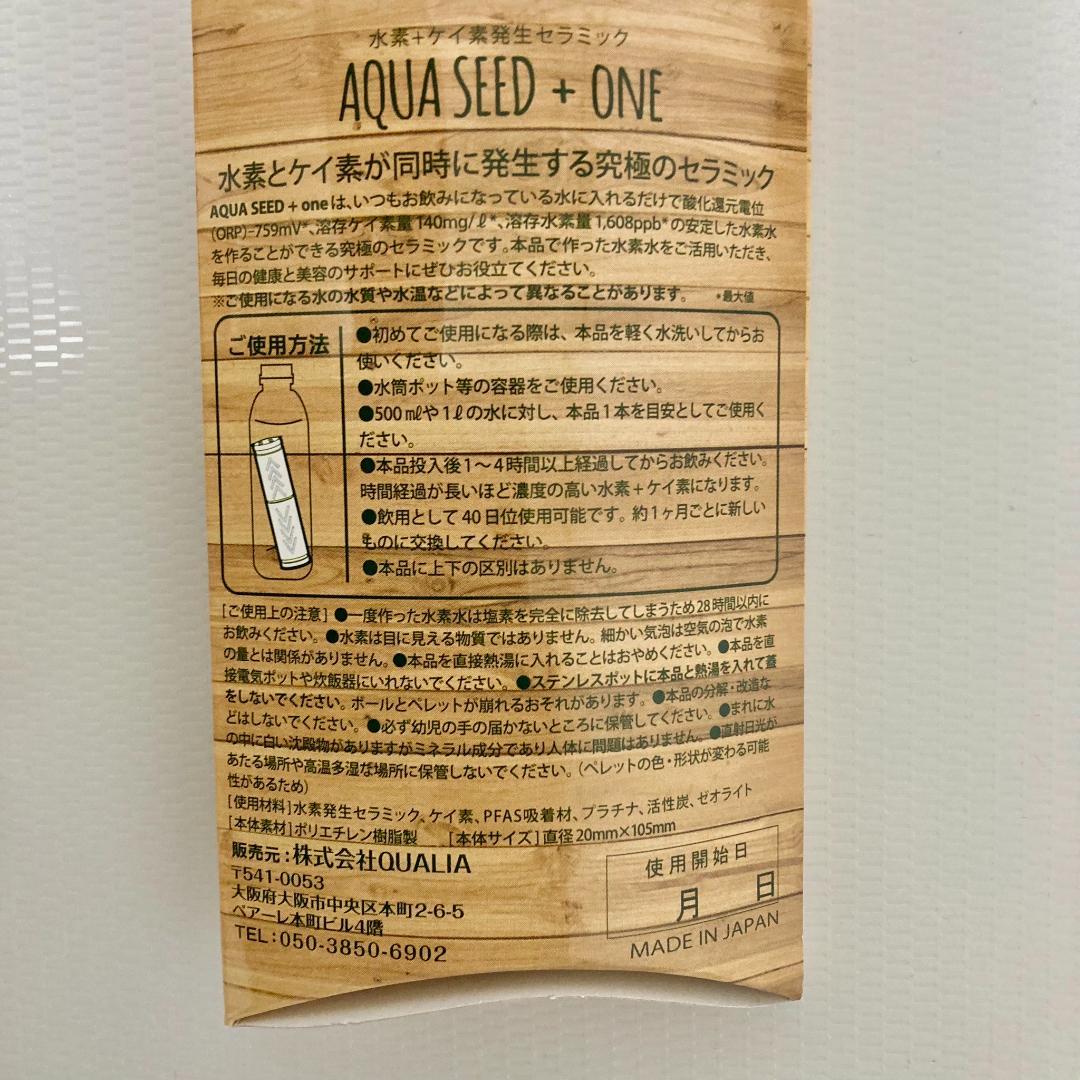 水素+ケイ素発生セラミック
AQUA SEED + ONE
水素とケイ素が同時に発生する究極のセラミック
AQUA SEED + oneは、いつもお飲みになっている水に入れるだけで酸化還元電位
(ORP)-759mV*、溶存ケイ素量140mg/ℓ*、溶存水素量1,608ppb*の安定した水素水
を作ることができる究極のセラミックです。本品で作った水素水をご活用いただき、
毎日の健康と美容のサポートにぜひお役立てください。
※ご使用になる水の水質や水温などによって異なることがあります。 *最大値
ご使用方法
●初めてご使用になる際は、本品を軽く水洗いしてからお
使いください。
●水筒ポット等の容器をご使用ください。
●500㎖や1ℓの水に対し、本品1本を目安としてご使用く
ださい。
●本品投入後1〜4時間以上経過してからお飲みください。
時間経過が長いほど濃度の高い水素+ケイ素になります。
●飲用として40日位使用可能です。約1ヶ月ごとに新しい
ものに交換してください。
●本品に上下の区別はありません。
[ご使用上の注意]●一度作った水素水は塩素を完全に除去してしまうため28時間以内に
お飲みください。●水素は目に見える物質ではありません。細かい気泡は空気の泡で水素
の量とは関係がありません。●本品を直接熱湯に入れることはおやめください。●本品を直
接電気ポットや炊飯器にいれないでください。●ステンレスポットに本品と熱湯を入れて蓋
をしないでください。ボールとペレットが崩れるおそれがあります。●本品の分解・改造な
どはしないでください。●必ず幼児の手の届かないところに保管してください。●まれに水
の中に白い沈殿物がありますがミネラル成分であり人体に問題はありません。●直射日光が
あたる場所や高温多湿な場所に保管しないでください。(ペレットの色・形状が変わる可能
性があるため)
[使用材料]水素発生セラミック、ケイ素、PFAS吸着材、プラチナ、活性炭、ゼオライト
[本体素材]ポリエチレン樹脂製 [本体サイズ]直径20mm×105mm
販売元:株式会社QUALIA
〒541-0053
大阪府大阪市中央区本町2-6-5
ペアーレ本町ビル4階
TEL:050-3850-6902
使用開始日
月 日
MADE IN JAPAN